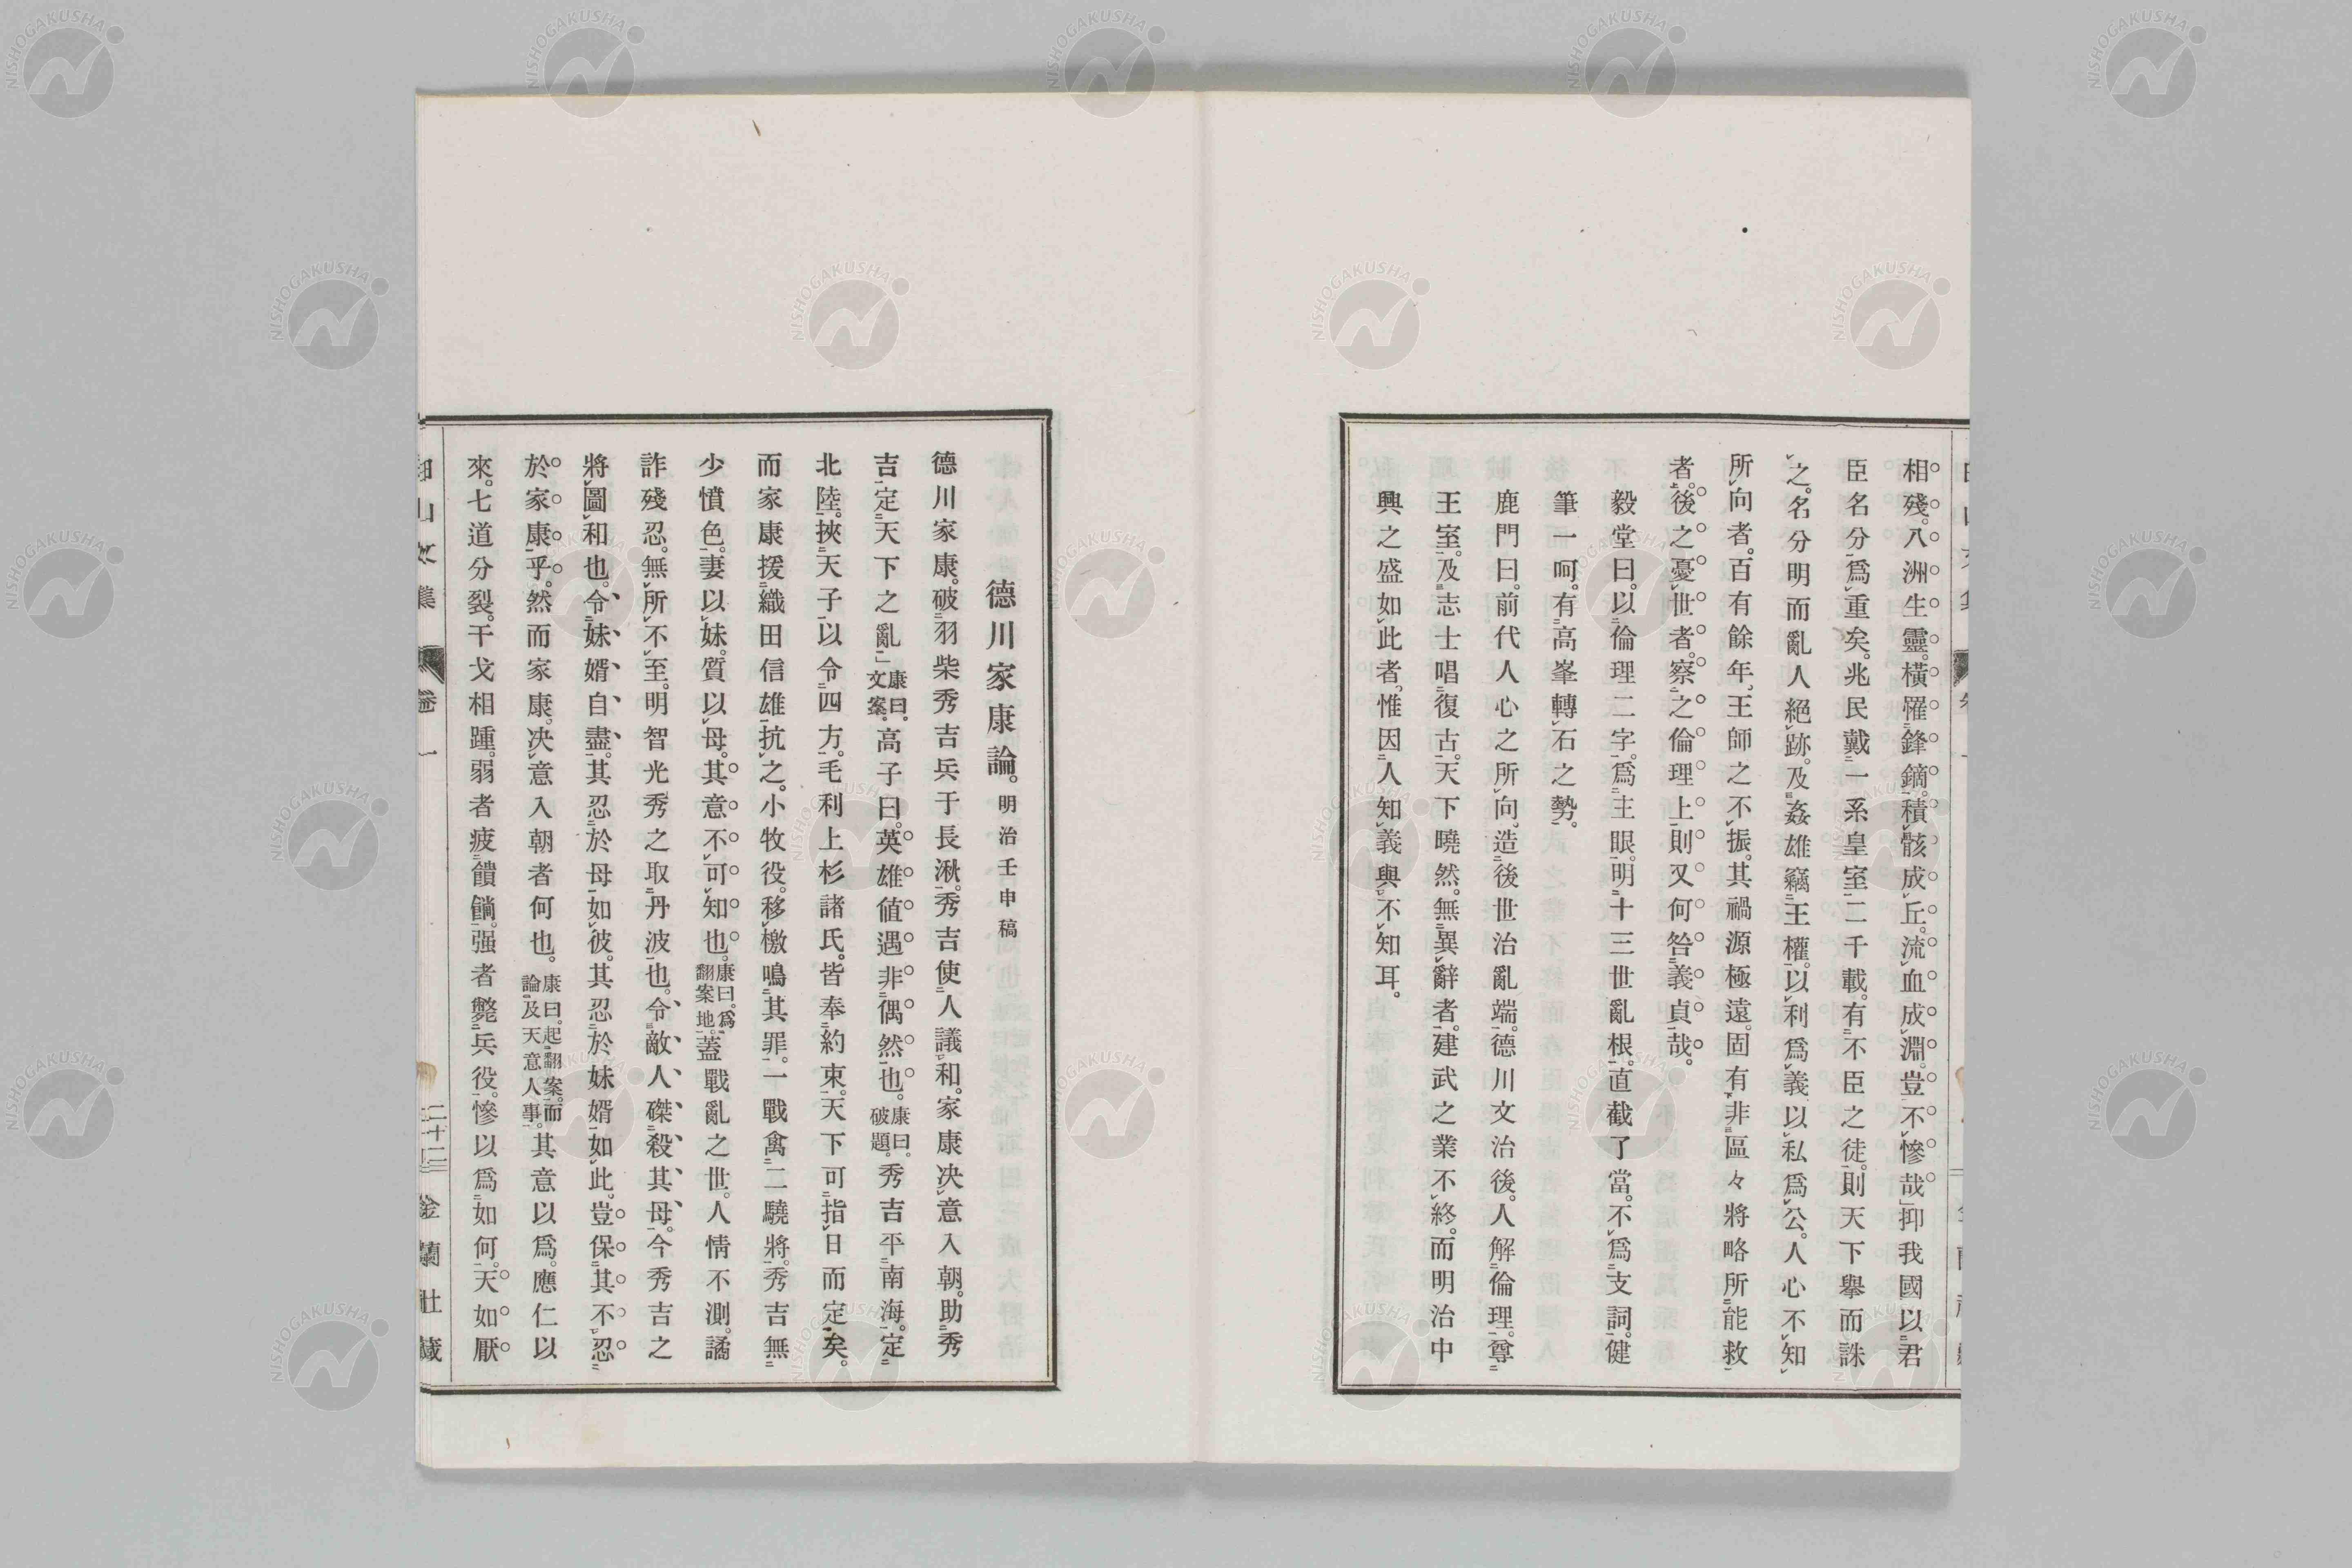 相殘。八洲生靈。橫罹鋒鏑。積骸成丘。流血成淵。豈不慘哉。抑我國以君
臣名分爲重矣。兆民戴一系皇室二千載。有不臣之徒。則天下擧而誅
之。名分明而亂人絕跡。及姦雄竊王權。以利爲義以私爲公。人心不知
所向者。百有餘年。王師之不振。其禍源極遠。固有非區々將略所能救
者。後之憂世者。察之倫理上。則又何咎義貞哉。
毅堂曰。以倫理二字。爲主眼。明十三世亂根。直截了當。不爲支詞。健
筆一呵。有高峯轉石之勢。
鹿門曰。前代人心之所向。造後世治亂端。德川文治後。人解倫理。尊
王室。及志士唱復古。天下曉然。無異辭者。建武之業不終。而明治中
興之盛如此者。惟因人知義與不知耳。
德川家康論。明治壬申稿
德川家康。破羽柴秀吉兵于長湫。秀吉使人議和。家康決意入朝。助秀
吉定天下之亂」康曰。文案。高子曰。英雄値遇非偶然也。康曰。破題。秀吉平南海。定
北陸。挾天子以令四方。毛利上杉諸氏。皆奉約束。天下可指日而定矣。
而家康援織田信雄抗之。小牧役。移檄鳴其罪。一戰禽二驍將。秀吉無
少憤色。妻以妹。質以母。其意不可知也。康曰。爲翻案地。蓋戰亂之世。人情不測。譎
詐殘忍。無所不至。明智光秀之取丹波也。令敵人磔殺其母。今秀吉之
將圖和也。令妹婿自盡。其忍於母如彼。其忍於妹婿如此。豈保其不忍
於家康乎。然而家康。決意入朝者何也。康曰。起翻案。而論及天意人事。其意以爲。應仁以
來。七道分裂。干戈相踵。弱者疲饋餉。强者斃兵役。慘以爲如何。天如厭
卷一
二十二
金蘭社藏